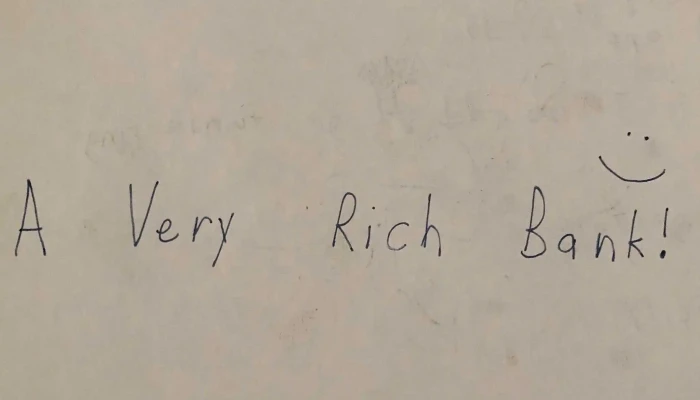 A Very Rich Bank!